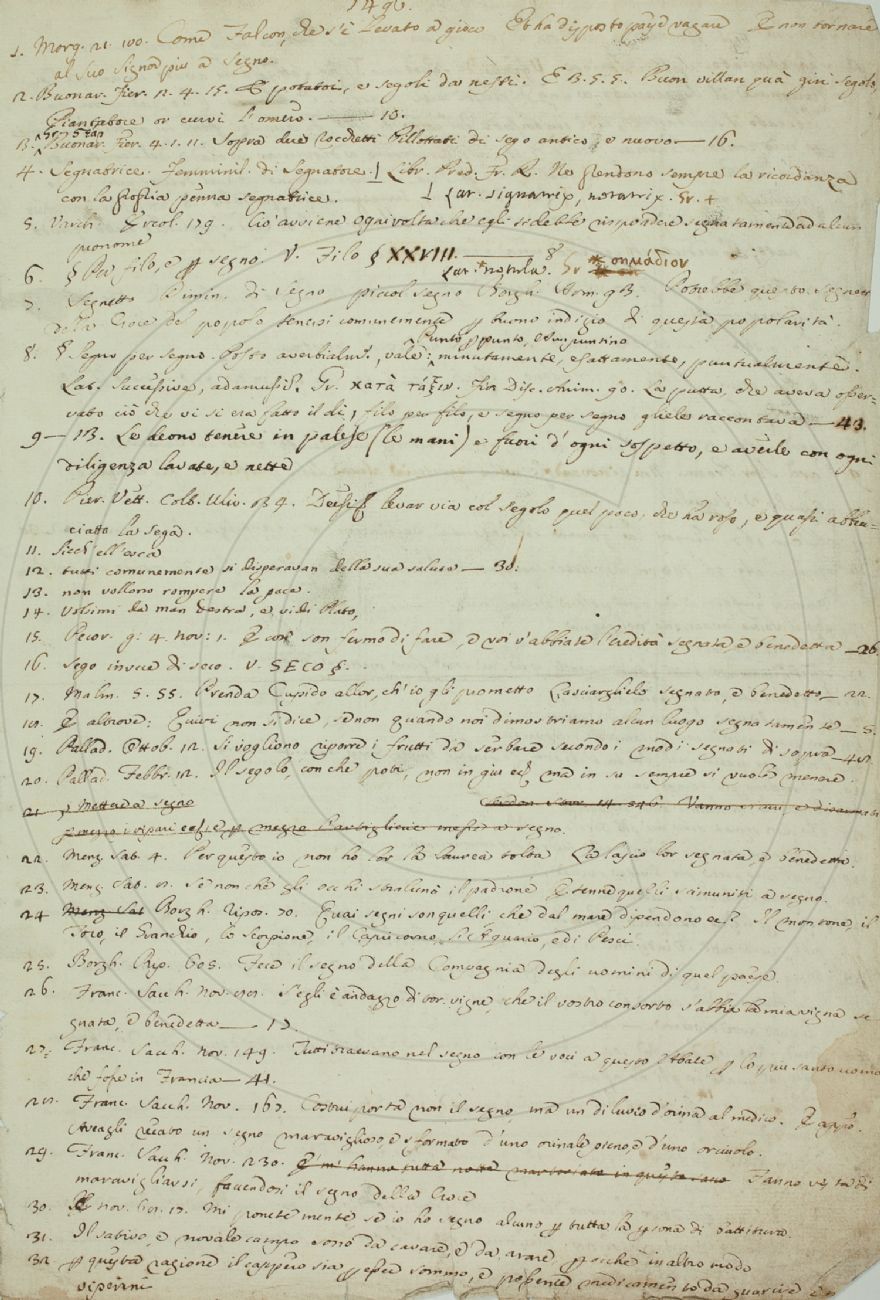 1496.
1. Morg. 21. 100. Come Falcon, che s'è levato a gioco Et ha disposto vagare E non tornare
al suo Signor più a segno.
2. Buonar. Fier. 2. 4. 15. E potatoi, e segoli da nesti. E 3. 5. 5. Buon villan può gir segolo,
Piantatore or curvi l'omero. — 10.
3. Buonar. Fier. 4. 1. 11. Sopra due rocchetti Pillottati di sego antico, e nuovo — 16.
4. Segnatrice. Femminil. di Segnatore. Libr. Pred. Fr. R. Ne prendono sempre la ricordanza
con la penna segnatrice. Lat. signatrix, notatrix. Gr. +
5. Varch. Ercol. 179. Ciò avviene ogni volta che egli si debbe rispondere segnatamente ad alcun
pronome
6. § Per filo, e per segno. V. Filo § XXVIII. —
Lat. notula. Gr. σημάδιον
7. Segnetto Dimin. di Segno piccol segno Borgh. Potrebbe questo segnetto
della Croce del popolo tenersi comunemente per buono indizio di questa popolarità.
Punto per punto,
8. § Segno per segno. Posto avverbialm., vale: minutamente, esattamente, puntualmente.
Lat. Gr. κατὰ τάξιν. Fir. Disc. anim. 90. La putta, che aveva osser-
vato ciò che vi si era fatto il dì, filo per filo, e segno per segno gliele raccontava — 43.
9 — 13. Le deono tenere in palese (le mani) e fuori d'ogni sospetto, e averle con ogni
diligenza lavate, e nette
10. Pier. Vett. Colt. Uliv. 34. Deesi levar via col segolo quel poco, che ha roso, e quasi abbru-
ciatto la sega.
11. dell'esca
12. tutti comunemente si disperavan della sua salute — 30.
13. non vollono rompere la pace.
14. Volsimi da man destra, e vidi Plato,
15. Pecor. g. 4. nov. 1. E così son fermo di fare, e voi v'abbiate l'eredità segnata e benedetta — 26.
16. Sego invece di seco. V. SECO §.
17. Malm. 5. 55. Prenda Cupido allor, ch'io gli prometto Lasciarglielo segnato, e benedetto — 22.
18. E altrove: Quivi non si dice, se non quando noi dimostriamo alcun luogo segnatamente — 5.
19. Pallad. Ottob. 12. Si vogliono riporre i frutti da serbare secondo i modi segnati di sopra —
20. Pallad. Febbr. 12. Il segolo, con che poti, non in giù ec. ma in su sempre si vuole menare.
21. Mettere a segno Vanno
a segno.
22. Menz. Sat. 4. Per questo io non ho lor la laurea tolta La lascio lor segnata, e benedetta.
23. Menz. Sat. Se non che gli occhi stralunò il padrone E tenne quelli scimuniti a segno.
24 Menz. Sat Borgh. Ripos. 70. Quai segni son quelli che dal mare dipendono ec.? Il montone, il
Toro, il Granchio, lo Scorpione, il Capricorno, l'Aquario, e di Pesci.
25. Borgh. Rip. 605. Fece il segno della Compagnia degli uomini di quel paese.
26. Franc. Sacch. Nov. S'egli è andazzo di tor vigne, che il vostro consorto s'abbia la mia vigna se-
gnata, e benedetta — 17.
27. Franc. Sacch. Nov. 149. Tutti traevano nel segno con le voci a questo Abate per lo più santo uomo
che fosse in Francia — 41.
28. Franc. Sacch. Nov. 167. Costui porta non il segno, ma un diluvio d'orina al medico. E appo.
Aveagli recato un segno maraviglioso, e sformato d'uno orinale pieno, e d'uno orciuolo.
29. Franc. Sacch. Nov. 230. Fanno vista di
maravigliarsi, facendosi il segno della Croce
30. E nov. 17. Mi ponete mente, se io ho segno alcuno per tutta la persona di battitura.
31. Il sativo, e novale campo sono da cavare, e da arare perocchè in altro modo
32 per questa ragione il cappero sia per essere sommo, e possente medicamento da guarire i
viperini